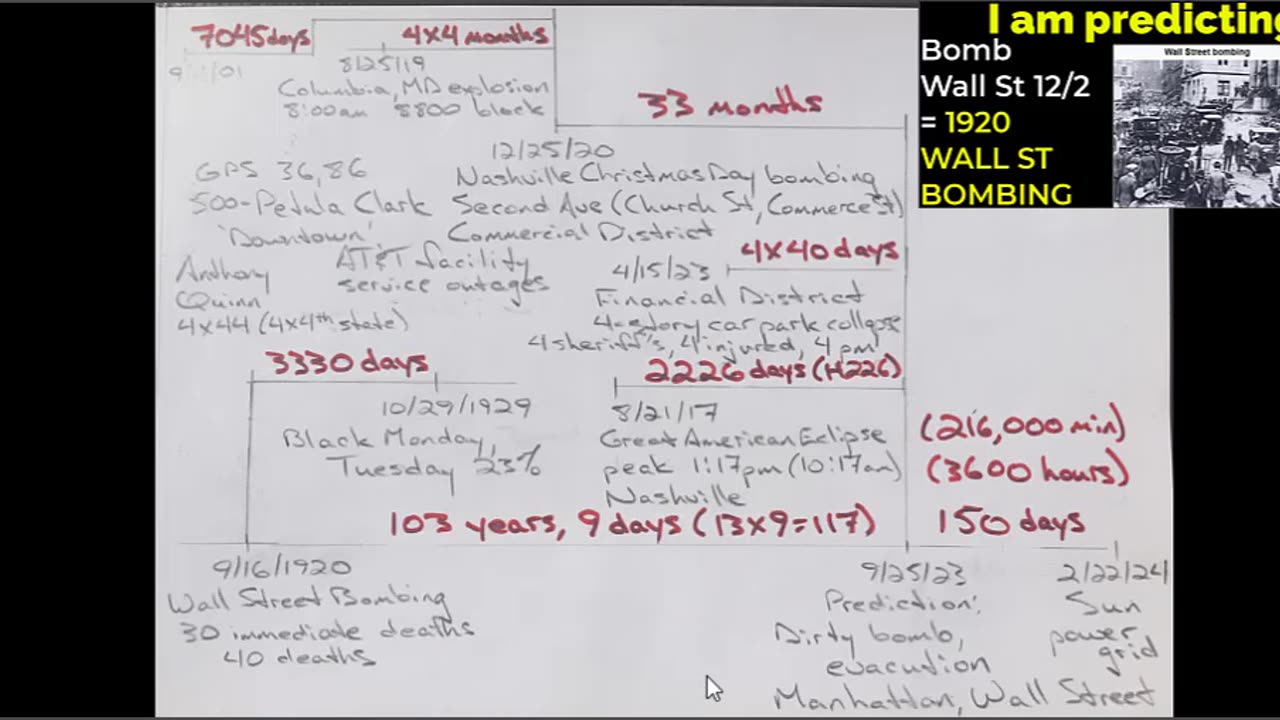 I am predicting
Bomb
Wall St 12/2
= 1920
WALL ST
BOMBING
Wall Street bombing
7045 days
4x4 months
8/25/19
Columbia, MD explosion
8:00am 8800 block
33 months
12/25/20
GPS 36,86
Nashville Christmas Day bombing
500-Petula Clark
Second Ave (Church St, Commerce St)
'Downtown'
Commercial District
4x40 days
Anthony
Quinn
AT&T facility
service outages
4/15/23
Financial District
4x44 (4x4th state)
4-story car park collapse
4 sheriff's, 4 injured, 4 pm
3330 days
2226 days (H226)
10/29/1929
8/21/17
Black Monday,
Tuesday 23%
Great American Eclipse
peak 1:17pm (10:17am)
Nashville
(216,000 min)
(3600 hours)
103 years, 9 days (13x9=117)
150 days
9/16/1920
9/25/23
2/22/24
Wall Street Bombing
30 immediate deaths
40 deaths
Prediction:
Dirty bomb,
evacution
Manhattan, Wall Street
Sun
power
grid